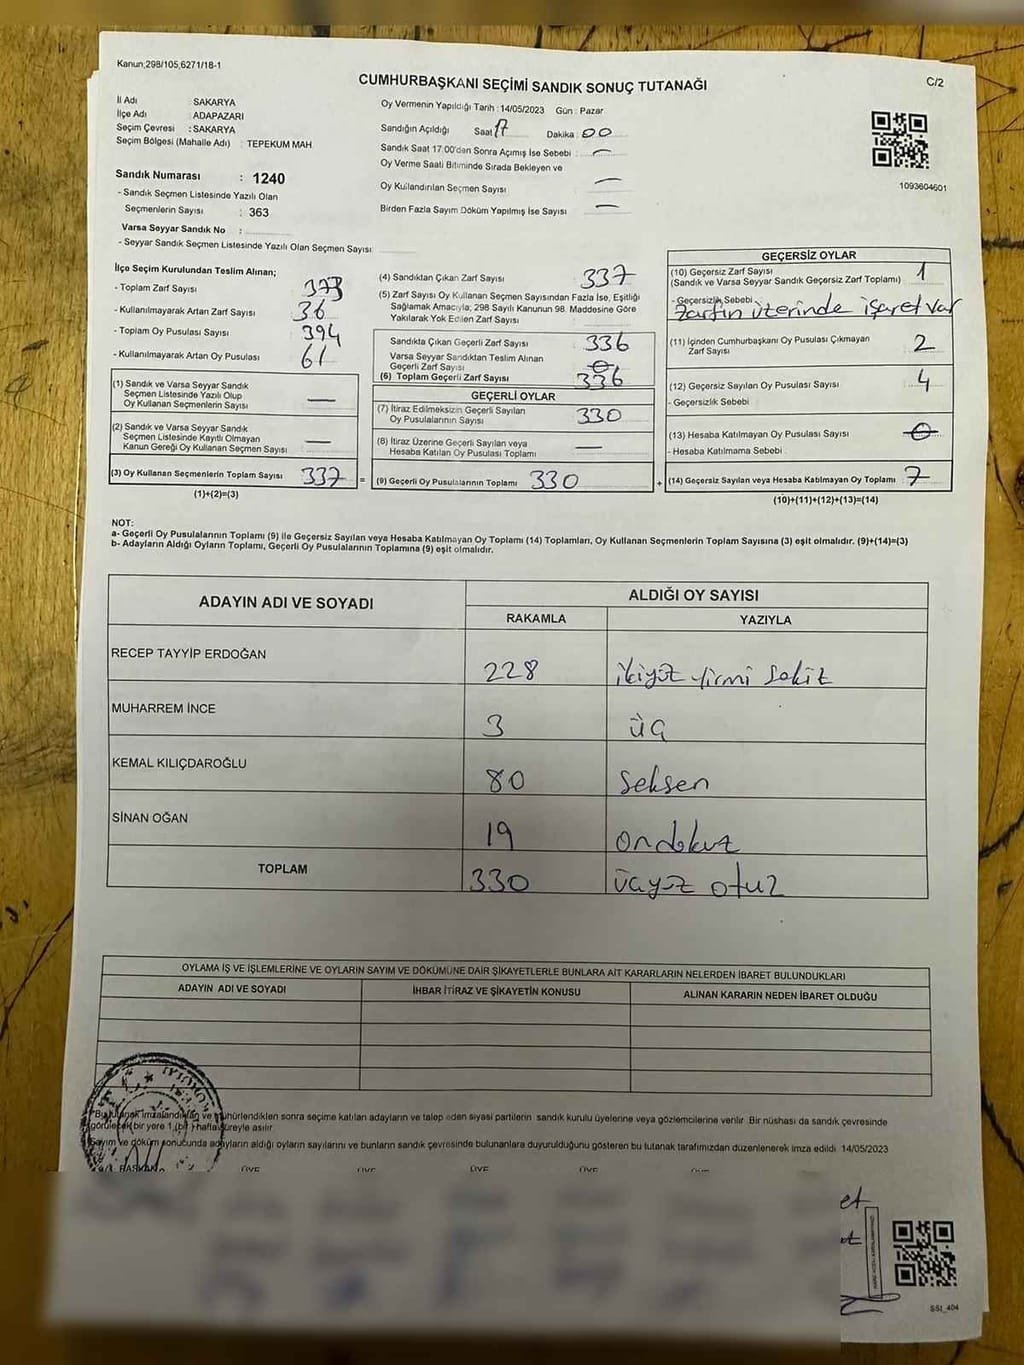 Kanun;298/105,6271/18-1
CUMHURBAŞKANI SEÇİMİ SANDIK SONUÇ TUTANAĞI
C/2
İl Adı : SAKARYA
İlçe Adı : ADAPAZARI
Seçim Çevresi : SAKARYA
Seçim Bölgesi (Mahalle Adı) : TEPEKUM MAH
Sandık Numarası : 1240
- Sandık Seçmen Listesinde Yazılı Olan
Seçmenlerin Sayısı : 363
Varsa Seyyar Sandık No :
- Seyyar Sandık Seçmen Listesinde Yazılı Olan Seçmen Sayısı:
Oy Vermenin Yapıldığı Tarih : 14/05/2023 Gün : Pazar
Sandığın Açıldığı Saat 17 Dakika : 00
Sandık Saat 17:00'den Sonra Açımış İse Sebebi : —
Oy Verme Saati Bitiminde Sırada Bekleyen ve
Oy Kullandırılan Seçmen Sayısı —
Birden Fazla Sayım Döküm Yapılmış İse Sayısı —
1093604601
İlçe Seçim Kurulundan Teslim Alınan;
- Toplam Zarf Sayısı : 373
- Kullanılmayarak Artan Zarf Sayısı : 36
- Toplam Oy Pusulası Sayısı : 394
- Kullanılmayarak Artan Oy Pusulası : 61
(1) Sandık ve Varsa Seyyar Sandık
Seçmen Listesinde Yazılı Olup
Oy Kullanan Seçmenlerin Sayısı : —
(2) Sandık ve Varsa Seyyar Sandık
Seçmen Listesinde Kayıtlı Olmayan
Kanun Gereği Oy Kullanan Seçmen Sayısı : —
(3) Oy Kullanan Seçmenlerin Toplam Sayısı : 337 =
(1)+(2)=(3)
(4) Sandıktan Çıkan Zarf Sayısı : 337
(5) Zarf Sayısı Oy Kullanan Seçmen Sayısından Fazla İse, Eşitliği
Sağlamak Amacıyla; 298 Sayılı Kanunun 98. Maddesine Göre
Yakılarak Yok Edilen Zarf Sayısı
Sandıkta Çıkan Geçerli Zarf Sayısı : 336
Varsa Seyyar Sandıktan Teslim Alınan
Geçerli Zarf Sayısı : 0
(6) Toplam Geçerli Zarf Sayısı : 336
GEÇERLİ OYLAR
(7) İtiraz Edilmeksizin Geçerli Sayılan
Oy Pusulalarının Sayısı : 330
(8) İtiraz Üzerine Geçerli Sayılan veya
Hesaba Katılan Oy Pusulası Toplamı : —
(9) Geçerli Oy Pusulalarının Toplamı : 330 +
GEÇERSİZ OYLAR
(10) Geçersiz Zarf Sayısı
(Sandık ve Varsa Seyyar Sandık Geçersiz Zarf Toplamı) : 1
- Geçersizlik Sebebi :
Zarfın üzerinde işaret var
(11) İçinden Cumhurbaşkanı Oy Pusulası Çıkmayan
Zarf Sayısı : 2
(12) Geçersiz Sayılan Oy Pusulası Sayısı : 4
- Geçersizlik Sebebi :
(13) Hesaba Katılmayan Oy Pusulası Sayısı : 0
- Hesaba Katılmama Sebebi :
(14) Geçersiz Sayılan veya Hesaba Katılmayan Oy Toplamı : 7
(10)+(11)+(12)+(13)=(14)
NOT:
a- Geçerli Oy Pusulalarının Toplamı (9) ile Geçersiz Sayılan veya Hesaba Katılmayan Oy Toplamı (14) Toplamları, Oy Kullanan Seçmenlerin Toplam Sayısına (3) eşit olmalıdır. (9)+(14)=(3)
b- Adayların Aldığı Oyların Toplamı, Geçerli Oy Pusulalarının Toplamına (9) eşit olmalıdır.
ADAYIN ADI VE SOYADI ALDIĞI OY SAYISI
RAKAMLA YAZIYLA
RECEP TAYYİP ERDOĞAN 228 ikiyüz yirmi sekiz
MUHARREM İNCE 3 üç
KEMAL KILIÇDAROĞLU 80 seksen
SİNAN OĞAN 19 ondokuz
TOPLAM 330 üçyüz otuz
OYLAMA İŞ VE İŞLEMLERİNE VE OYLARIN SAYIM VE DÖKÜMÜNE DAİR ŞİKAYETLERLE BUNLARA AİT KARARLARIN NELERDEN İBARET BULUNDUKLARI
ADAYIN ADI VE SOYADI İHBAR İTİRAZ VE ŞİKAYETİN KONUSU ALINAN KARARIN NEDEN İBARET OLDUĞU
*Bu tutanak imzalandıktan ve mühürlendikten sonra seçime katılan adayların ve talep eden siyasi partilerin sandık kurulu üyelerine veya gözlemcilerine verilir. Bir nüshası da sandık çevresinde
görülecek bir yere 1 (bir) hafta süreyle asılır.
Sayım ve döküm sonucunda adayların aldığı oyların sayılarını ve bunların sandık çevresinde bulunanlara duyurulduğunu gösteren bu tutanak tarafımızdan düzenlenerek imza edildi. 14/05/2023
BAŞKAN ÜYE ÜYE ÜYE ÜYE
SSI_404